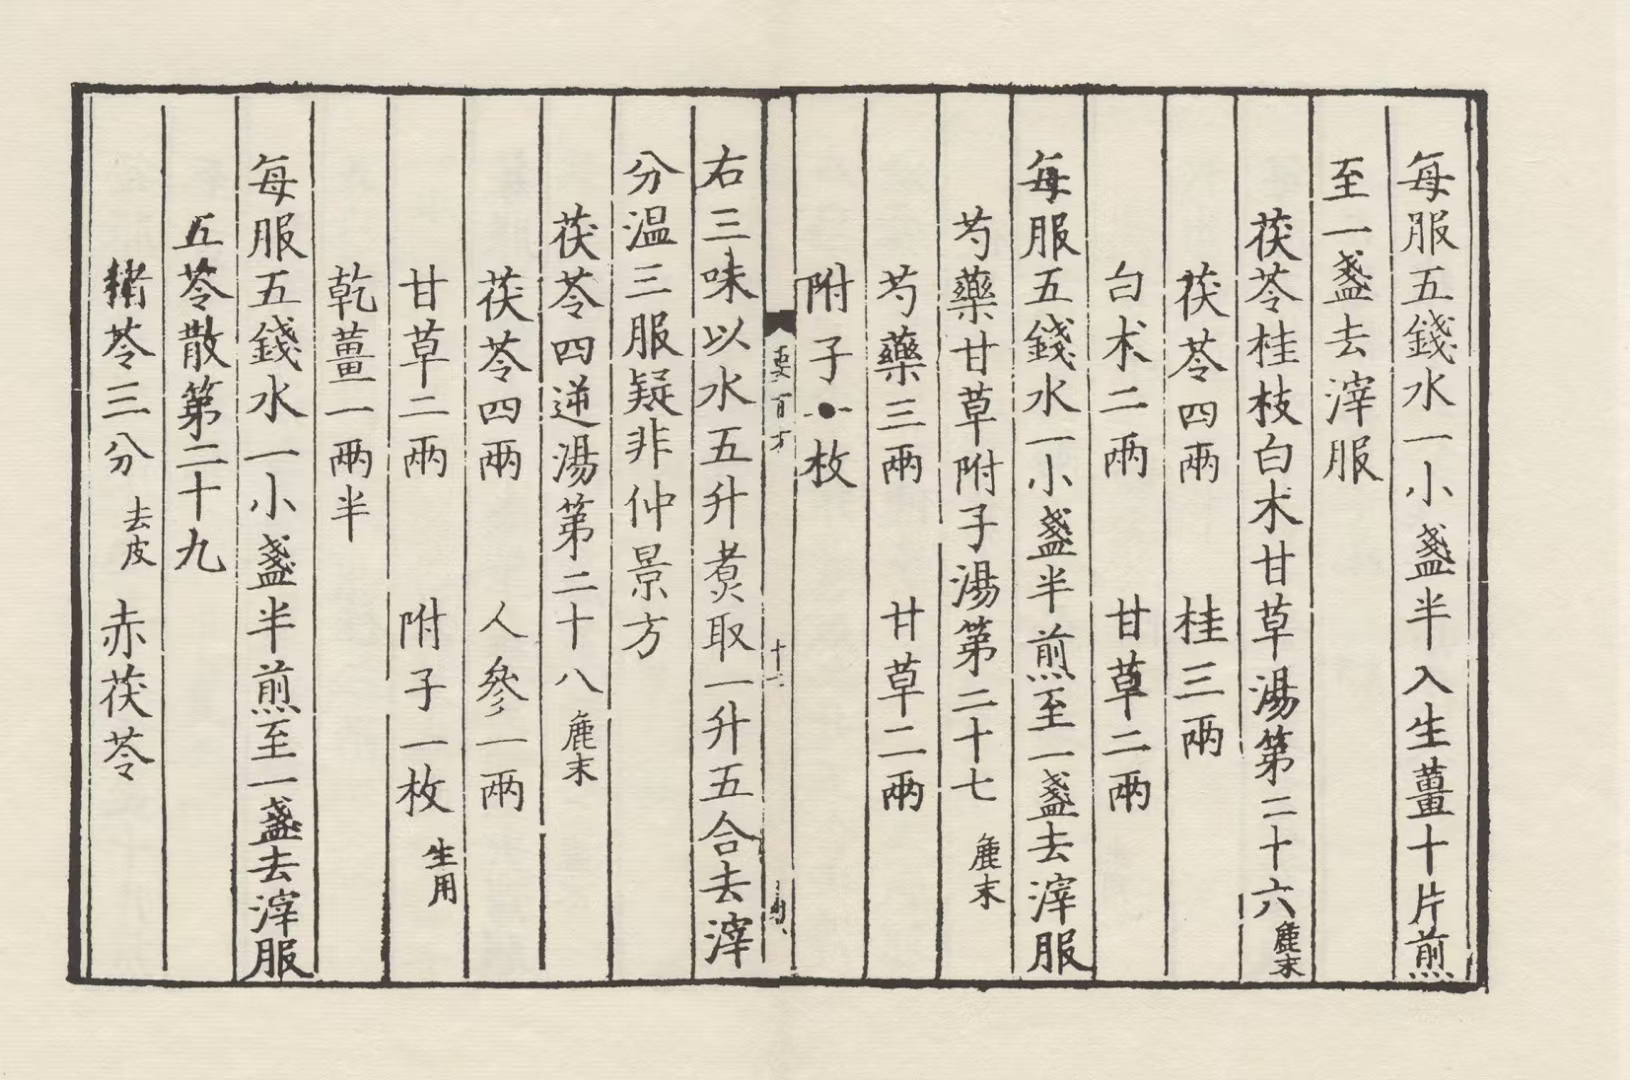 每服五錢水一小盞半入生薑十片煎
至一盞去滓服
茯苓桂枝白术甘草湯第二十六麄末
茯苓四兩 桂三兩
白术二兩 甘草二兩
每服五錢水一小盞半煎至一盞去滓服
芍藥甘草附子湯第二十七 麄末
芍藥三兩 甘草二兩
附子一枚
要百方
右三味以水五升煑取一升五合去滓
分温三服疑非仲景方
茯苓四逆湯第二十八 麄末
茯苓四兩 人參一兩
甘草二兩 附子一枚 生用
乾薑一兩半
每服五錢水一小盞半煎至一盞去滓服
五苓散第二十九
豬苓三分 去皮 赤茯苓